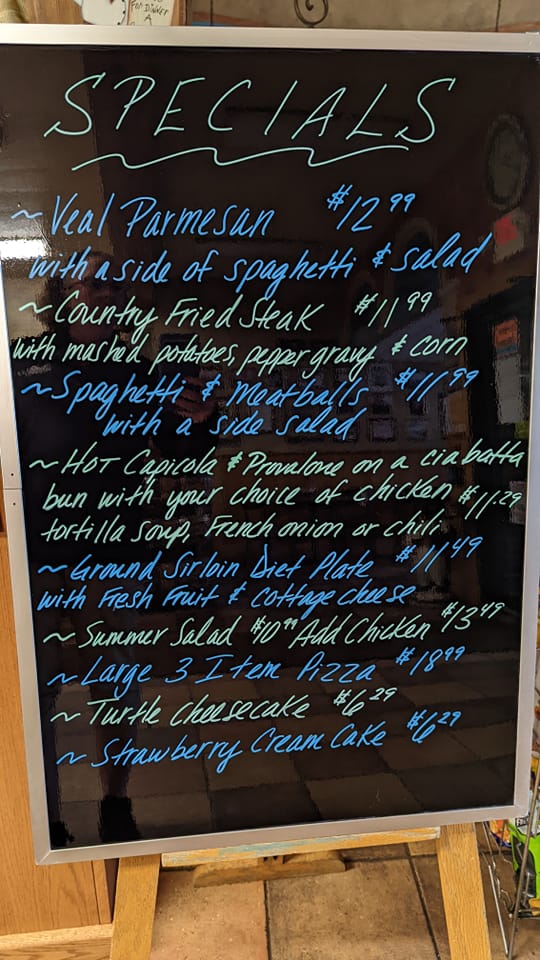 FOR DINNER
A
SPECIALS
~ Veal Parmesan $12.99
with a side of spaghetti & salad
~ Country Fried Steak $11.99
with mashed potatoes, pepper gravy & corn
~ Spaghetti & Meatballs $11.99
with a side salad
~ HOT Capicola & Provalone on a ciabatta
bun with your choice of chicken $11.29
tortilla soup, French onion or chili
~ Ground Sirloin Diet Plate $11.49
with Fresh Fruit & cottage cheese
~ Summer Salad $10.99 Add Chicken $13.49
~ Large 3 Item Pizza $18.99
~ Turtle Cheesecake $6.29
~ Strawberry Cream Cake $6.29